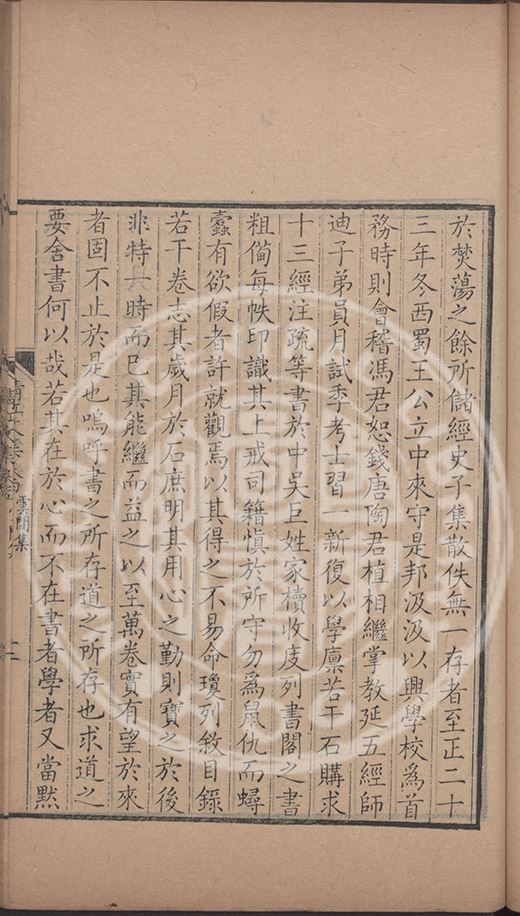 於焚蕩之餘所儲經史子集散佚無一存者至正二十
三年冬西蜀王公立中來守是邦汲汲以興學校爲首
務時則會稽馮君恕錢唐陶君植相繼掌教延五經師
迪子弟員月試季考士習一新復以學廪若干石購求
十三經注疏等書於中吳巨姓家櫝收庋列書閣之書
粗備每帙印識其上戒司籍愼於所守勿爲鼠仇而蟫
蠹有欲假者許就觀焉以其得之不易命瓊列敘目錄
若干卷志其歲月於石庶明其用心之勤則寶之於後
非特六時而已其能繼而益之以至萬卷實有望於來
者固不止於是也嗚呼書之所存道之所存也求道之
要舍書何以哉若其在於心而不在書者學者又當默
雲間集